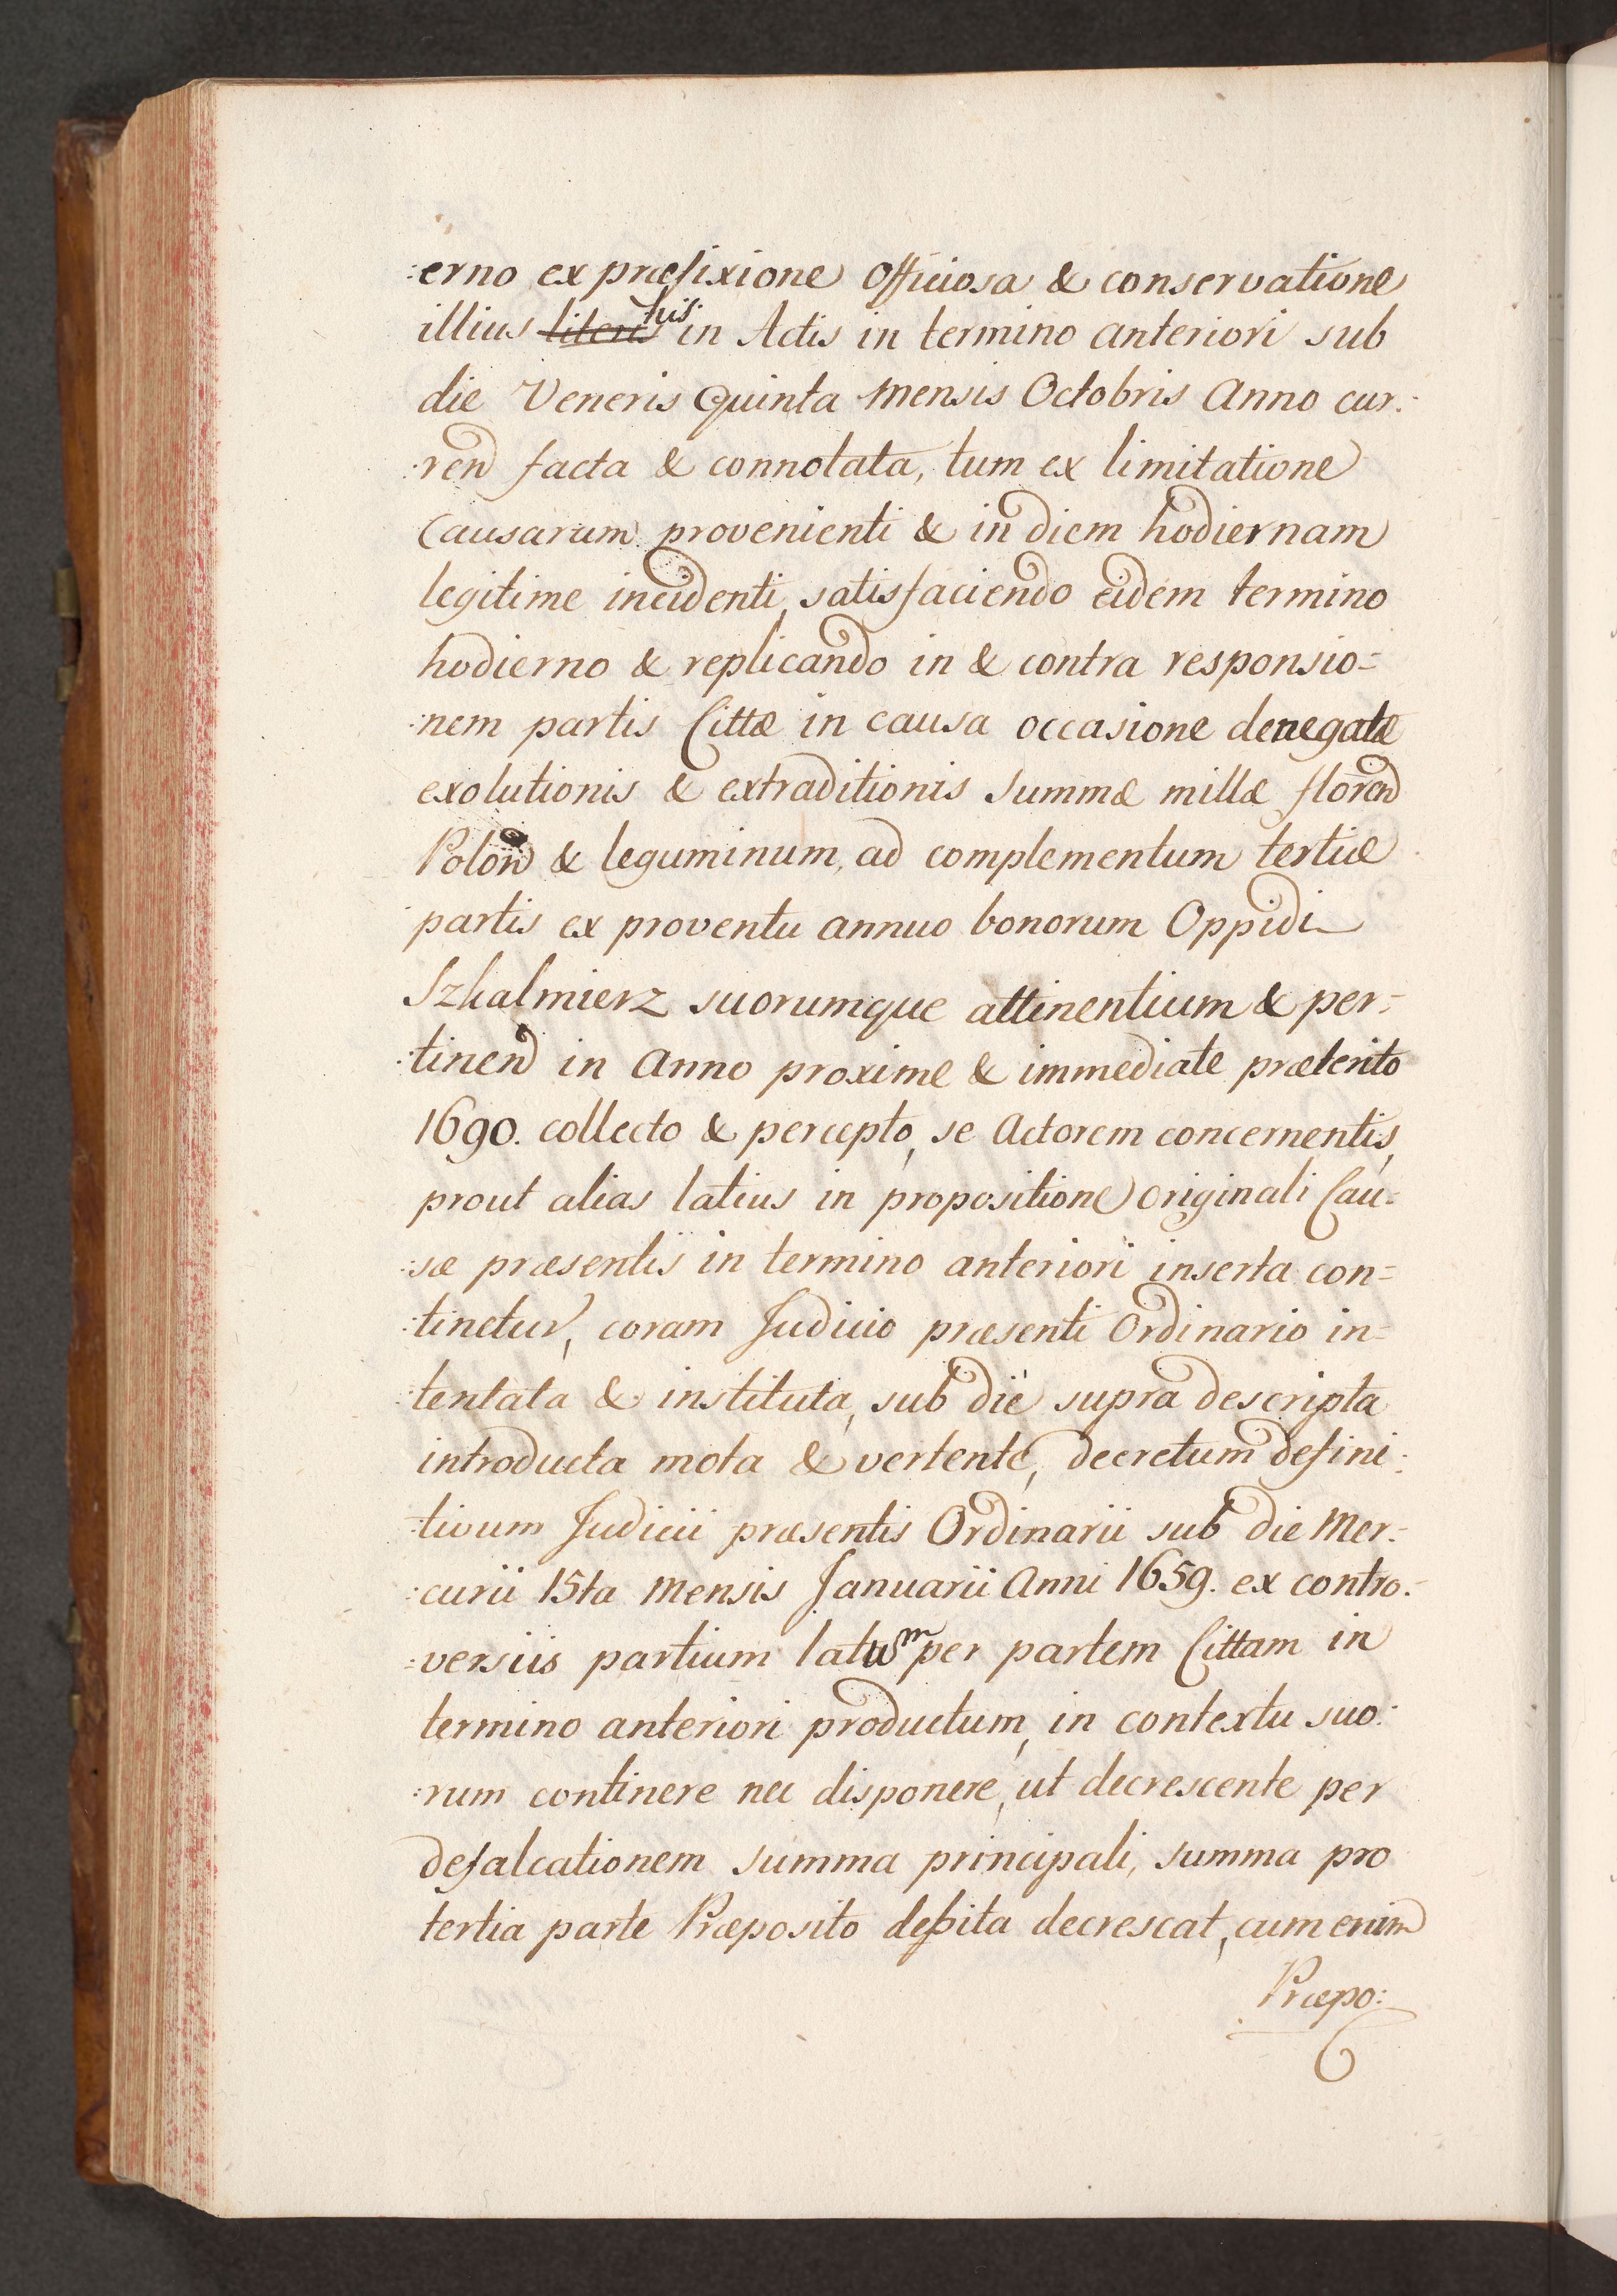 :erno ex præfixione Officiosa & conservatione
illius ~~literis~~ his in Actis in termino anteriori sub
die Veneris Quinta Mensis Octobris Anno cur:
:ren facta & connotata, tum ex limitatione
Causarum provenienti & in diem hodiernam
legitime incidenti, satisfaciendo eidem termino
hodierno & replicando in & contra responsio=
:nem partis Cittæ in causa occasione denegatæ
exolutionis & extraditionis summæ millæ floren
Polon & leguminum, ad complementum tertiæ
partis ex proventu annuo bonorum Oppidi
Szkalmierz suorumque attinentium & per=
:tinen in Anno proxime & immediate præterito
1690. collecto & percepto, se Actorem concernentis,
prout alias latius in propositione originali Cau=
:sæ præsentis in termino anteriori inserta con=
:tinetur, coram Judicio præsenti Ordinario in=
:tentata & instituta, sub die supra descripta
introducta mota & vertente, decretum defini:
:tivum Judicii præsentis Ordinarii sub die Mer:
:curii 15ta Mensis Januarii Anni 1659. ex contro:
:versiis partium latum per partem Cittam in
termino anteriori productum, in contextu suo:
:rum continere nec disponere, ut decrescente per
defalcationem summa principali, summa pro
tertia parte Præposito debita decrescat, cum enim
Præpo: